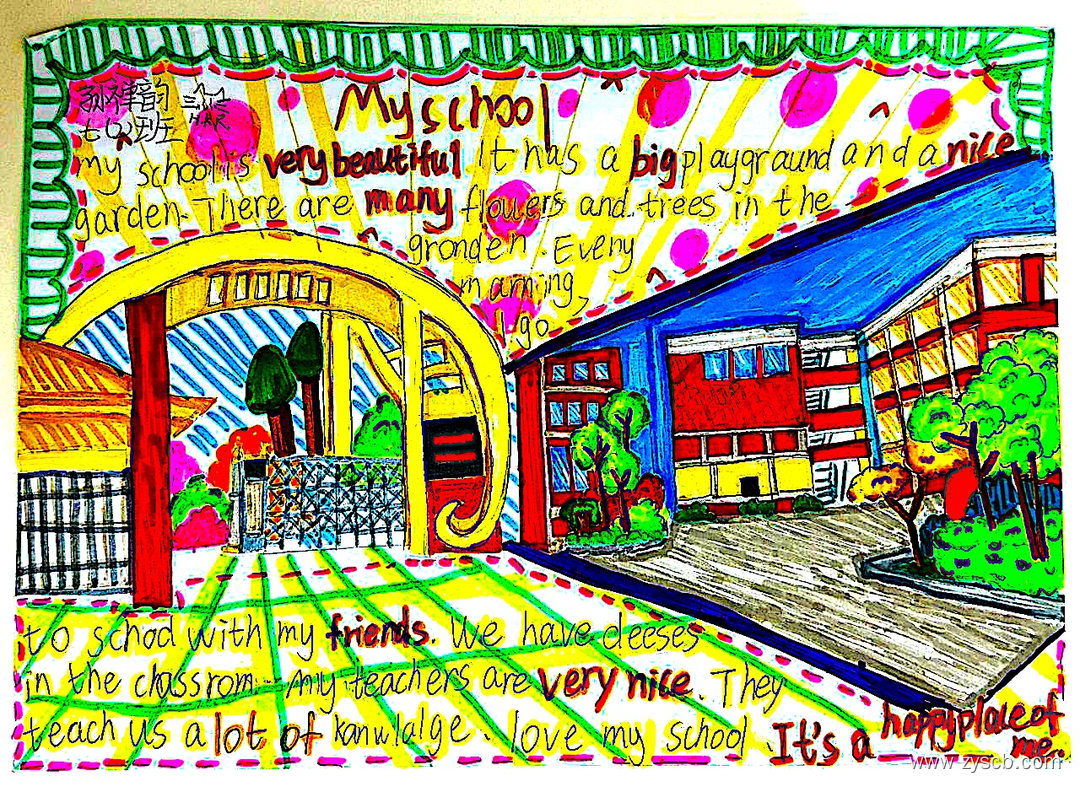 班
My school
my school is very beautiful. It has a big playgraund and a nice
garden. There are many flowers and trees in the
gronden. Every
marning,
I go
to school with my friends. We have deeses
in the chassrom. my teachers are very nice. They
teach us a lot of kanwlalge. I love my school. It's a happy place of
me.
www.zyscb.com